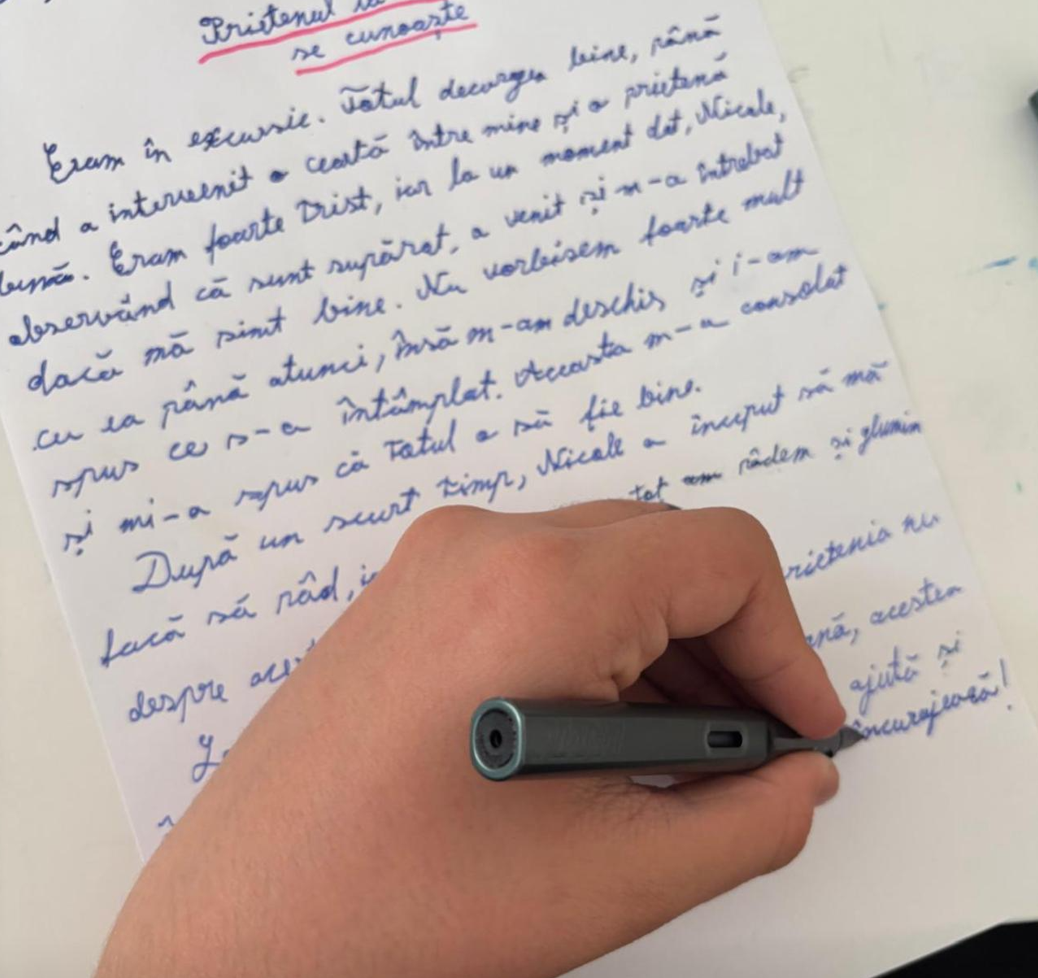 Prietenul la
se cunoaște
Eram în excursie. Totul decurgea bine, până
când a intervenit o ceartă între mine și o prietenă
bună. Eram foarte trist, iar la un moment dat, Nicole,
observând că sunt supărat, a venit și m-a întrebat
dacă mă simt bine. Nu vorbisem foarte mult
cu ea până atunci, însă m-am deschis și i-am
spus ce s-a întâmplat. Aceasta m-a consolat
și mi-a spus că totul o să fie bine.
După un scurt timp, Nicole a început să mă
facă să râd, tot am râdem și glumin
despre prietenia nu
acestea
ajută și
încurajează!